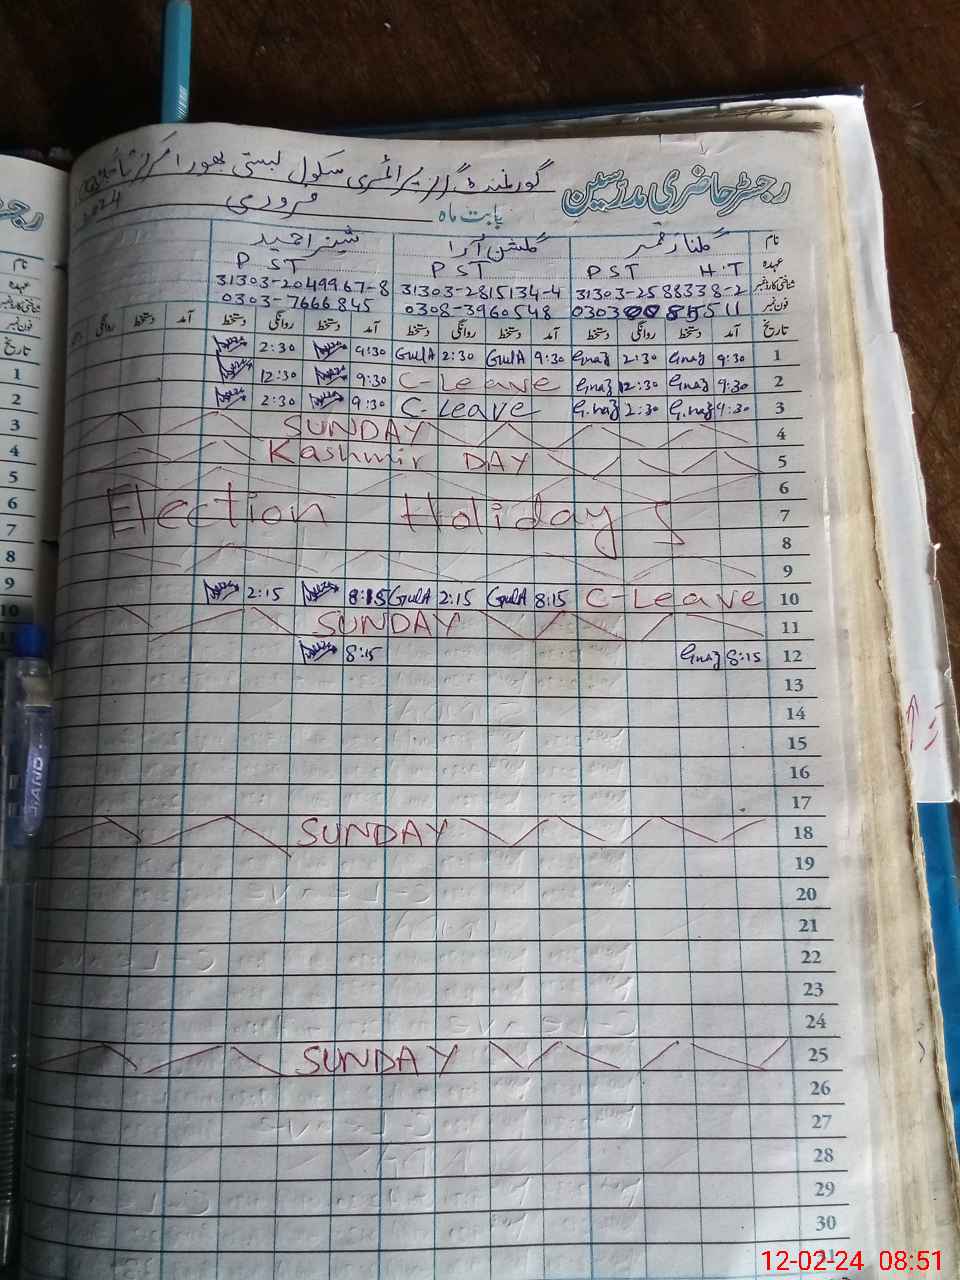 رجسٹر حاضری مدرسین گورنمنٹ گرلز پرائمری سکول بستی بھورا
بابت ماہ فروری 2024
نام گلناز عمر گلشن آرا شہناز احمد
عہدہ PST H.T PST PST
شناختی کارڈ نمبر 31303-2588338-2 31303-2815134-4 31303-2049967-8
فون نمبر 0308-3960548 0303-7666845
تاریخ آمد دستخط روانگی دستخط آمد دستخط روانگی دستخط آمد دستخط روانگی دستخط آمد دستخط روانگی
1 9:30 Gnaz 2:30 Gnaz 9:30 GulA 2:30 GulA 9:30 2:30
2 9:30 Gnaz 12:30 Gnaz C-Leave 9:30 12:30
3 9:30 Gnaz 2:30 Gnaz C-Leave 9:30 2:30
4 SUNDAY
5 Kashmir DAY
6
7 Election Holidays
8
9
10 C-Leave 8:15 GulA 2:15 GulA 8:15 2:15
11 SUNDAY
12 8:15 Gnaz 8:15
13
14
15
16
17
18 SUNDAY
19
20
21
22
23
24
25 SUNDAY
26
27
28
29
30
31
رجسٹر
نام
عہدہ
شناختی کارڈ نمبر
فون نمبر
تاریخ
1
2
3
4
5
6
7
8
9
10
11
12-02-24 08:51